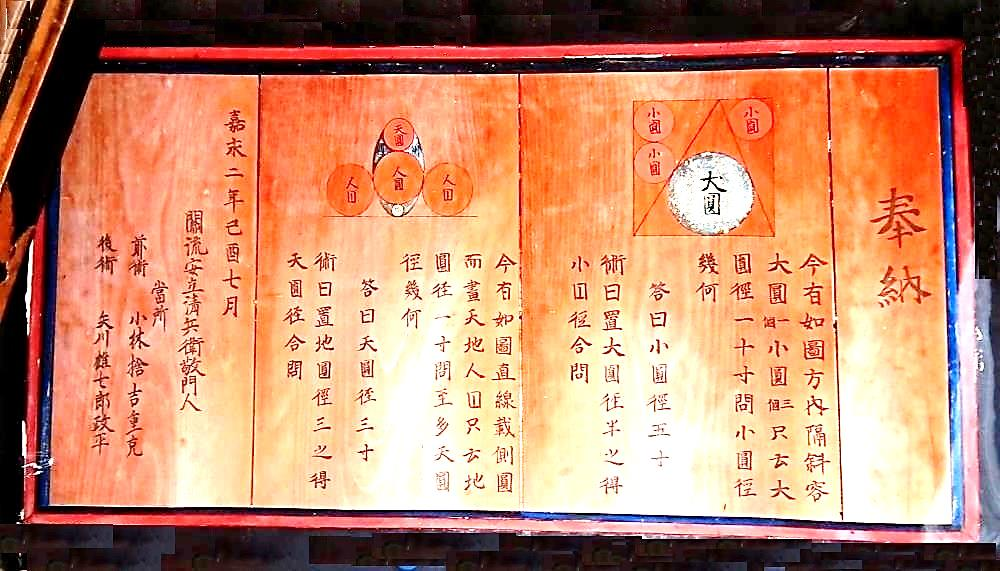 奉納
小圓
小圓
小圓
大圓
今有如圖方内隔斜容
大圓一個小圓三個只云大
圓徑一十寸問小圓徑
幾何
答曰小圓徑五寸
術曰置大圓徑半之得
小囗徑合問
天圓
人囗
人圓
人囗
今有如圖直線載側圓
而畫天地人囗只云地
圓徑一寸問至多天圓
徑幾何
答曰天圓徑三寸
術曰置地圓徑三之得
天圓徑合問
嘉永二年己酉七月
關流安立清兵衛敬門人
當所
前術 小林捨吉重克
後術 矢川雄七郎政平